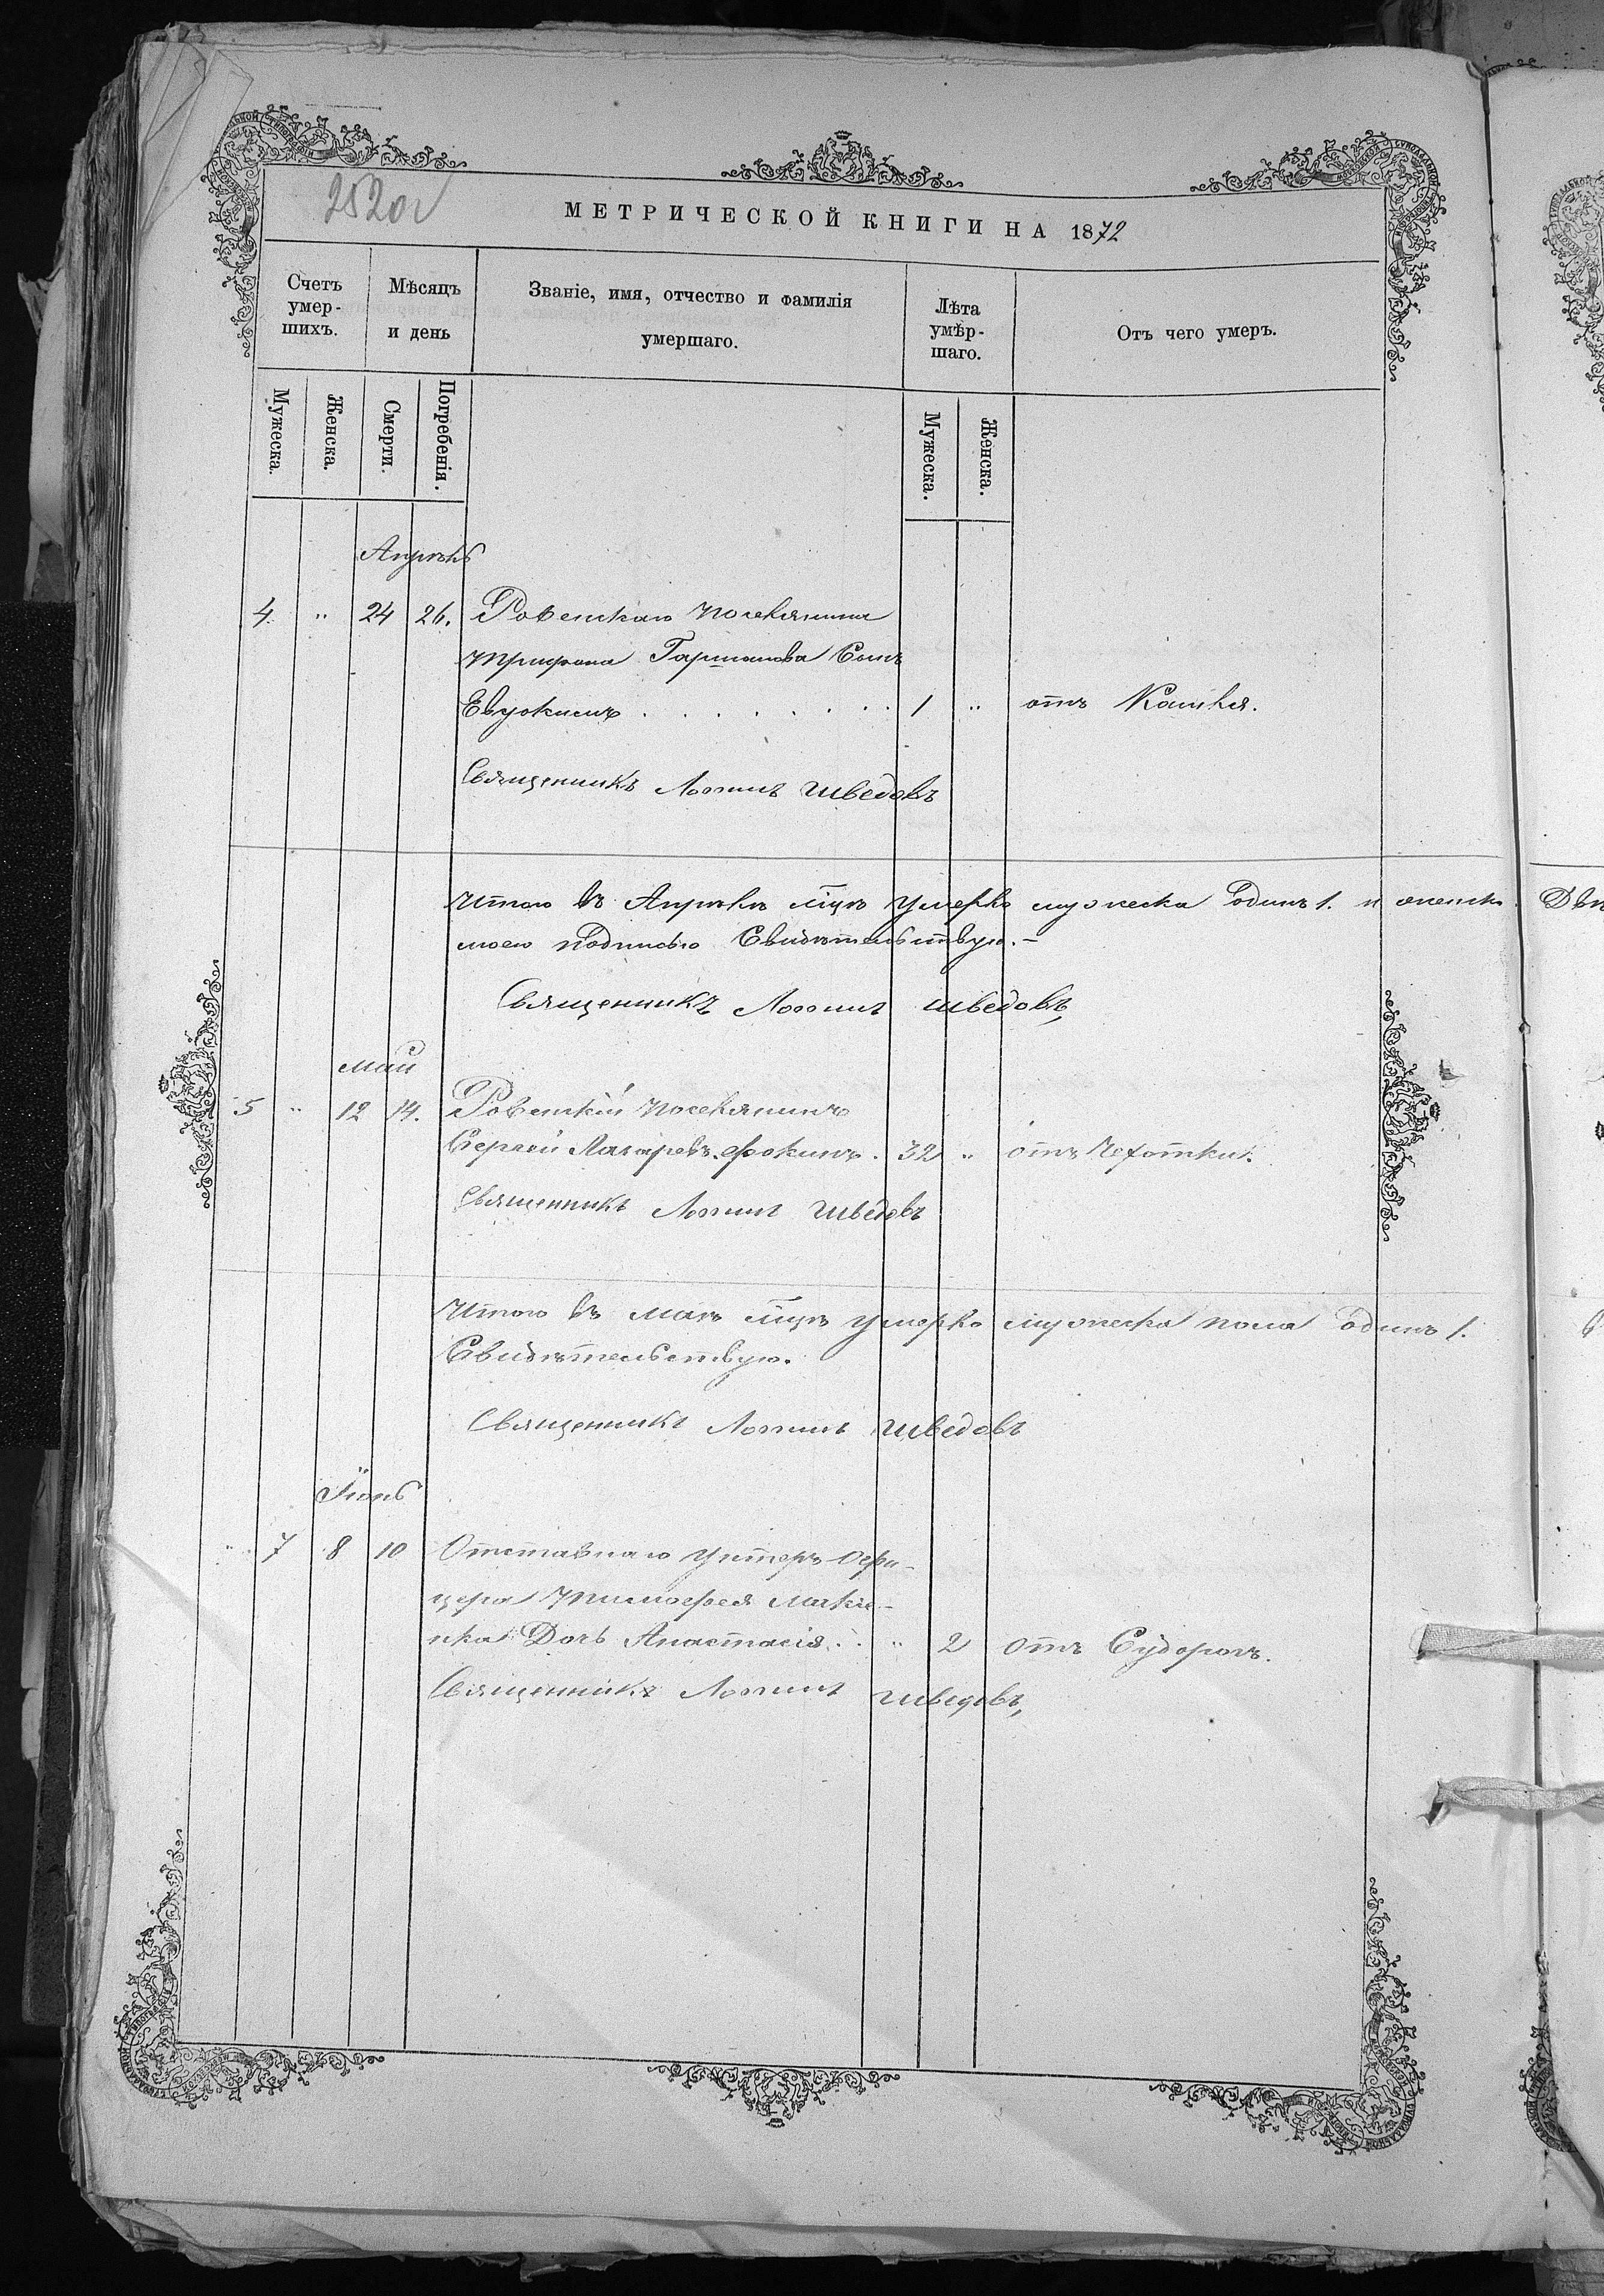 252 об
МЕТРИЧЕСКОЙ КНИГИ НА 1872
Счетъ умер-шихъ.
Мѣсяцъ и день
Званіе, имя, отчество и фамилія умершаго.
Лѣта умѣр-шаго.
Отъ чего умеръ.
Мужеска.
Женска.
Смерти.
Погребенія.
Мужеска.
Женска.
Апрѣль
4. " 24 26. Ровенскаго поселянина
Трифона Гаршанова Сынъ
Евдокимъ . . . . . . . . 1 " отъ Кашля.
Священникъ Логинъ Шведовъ
Итого въ Апрѣлѣ мцѣ умерло мужеска одинъ 1. и женска
моею подписью Свидѣтельствую.-
Священникъ Логинъ Шведовъ,
Май
5 " 12 14. Ровенскій поселянинъ
Сергѣй Лазаревъ Фокинъ . 32 " отъ Чехотки.
Священникъ Логинъ Шведовъ
Итого въ маѣ мцѣ умерло мужеска пола одинъ 1.
Свидѣтельствую.
Священникъ Логинъ Шведовъ
Іюнь
" 7 8 10 Отставнаго Унтеръ-Офи-
цера Тимофея
Дочь Анастасія. . . " 2 отъ Судорогъ.
Священникъ Логинъ Шведовъ,